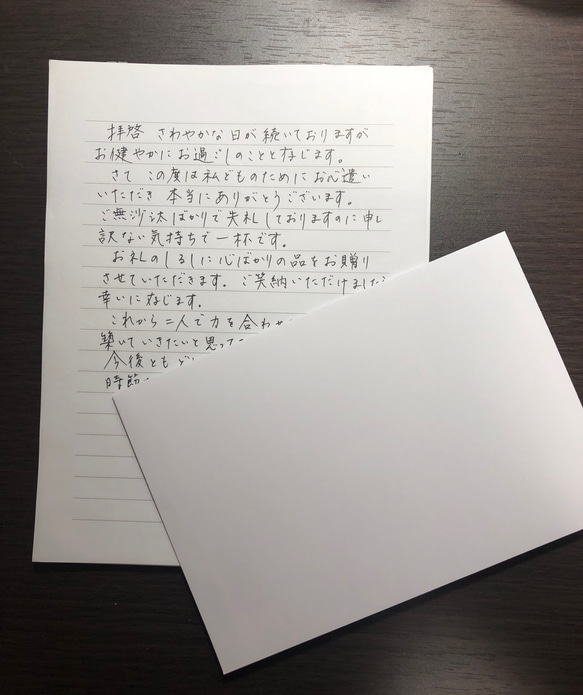 拝啓 さわやかな日が続いておりますが
お健やかにお過ごしのことと存じます。
さて この度は私どものためにお心遣い
いただき 本当にありがとうございます。
ご無沙汰ばかりで失礼しておりますのに申し
訳ない気持ちで一杯です。
お礼のしるしに心ばかりの品をお贈り
させていただきます。ご笑納いただけましたら
幸いに存じます。
これから二人で力を合わせ
築いていきたいと思って
今後とも
時節